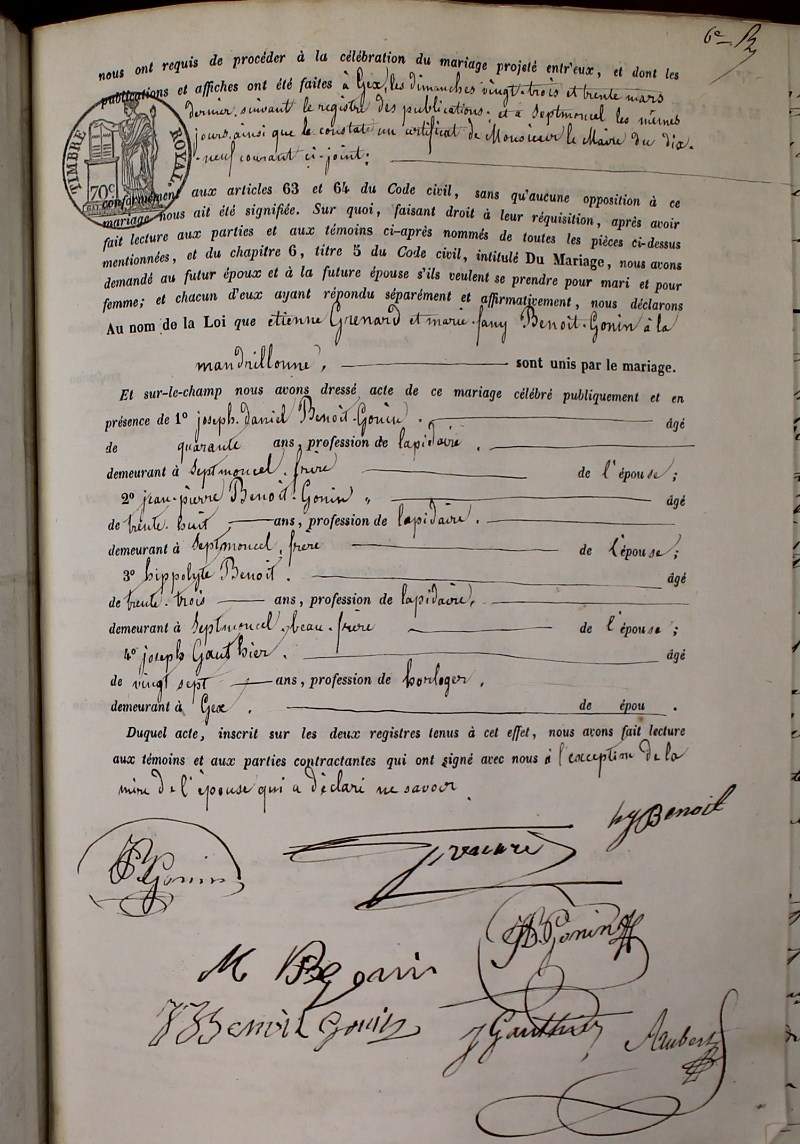 6e
nous ont requis de procéder à la célébration du mariage projeté entr'eux, et dont les
publications et affiches ont été faites à Gex, les dimanches vingt-trois et trente mars
dernier, suivant le registre des publications; et à Septmoncel les mêmes
jours, ainsi que le constate un certificat de Monsieur le Maire du dix-
-neuf courant ci-joint;
TIMBRE ROYAL.
70c
conformément aux articles 63 et 64 du Code civil, sans qu'aucune opposition à ce
mariage nous ait été signifiée. Sur quoi, faisant droit à leur réquisition, après avoir
fait lecture aux parties et aux témoins ci-après nommés de toutes les pièces ci-dessus
mentionnées, et du chapitre 6, titre 5 du Code civil, intitulé Du Mariage, nous avons
demandé au futur époux et à la future épouse s'ils veulent se prendre pour mari et pour
femme; et chacun d'eux ayant répondu séparément et affirmativement, nous déclarons
Au nom de la Loi que etienne Grenard et marie-fany Benoît-Gonin à la
mandrillonne, sont unis par le mariage.
Et sur-le-champ nous avons dressé acte de ce mariage célébré publiquement et en
présence de 1º joseph-daniel Benoît-Gonin. âgé
de quarante ans, profession de lapidaire.
demeurant à Septmoncel. frère de l'épouse;
2º jean-pierre Benoît-Gonin, âgé
de trente-huit ans, profession de lapidaire.
demeurant à Septmoncel, frère de l'épouse;
3º hippolyte Benoit. âgé
de trente-trois ans, profession de lapidaire,
demeurant à Septmoncel, beau-frère de l'épouse;
4º joseph Gauthier. âgé
de vingt sept ans, profession de horloger,
demeurant à Gex. de épou .
Duquel acte, inscrit sur les deux registres tenus à cet effet, nous avons fait lecture
aux témoins et aux parties contractantes qui ont signé avec nous à l'exception de la
mère de l'épouse qui a déclaré ne savoir
hy Benoit
Gonin
B. Gonin
M Bgonin
Benoit Gonin
J Gauthier
Aubert